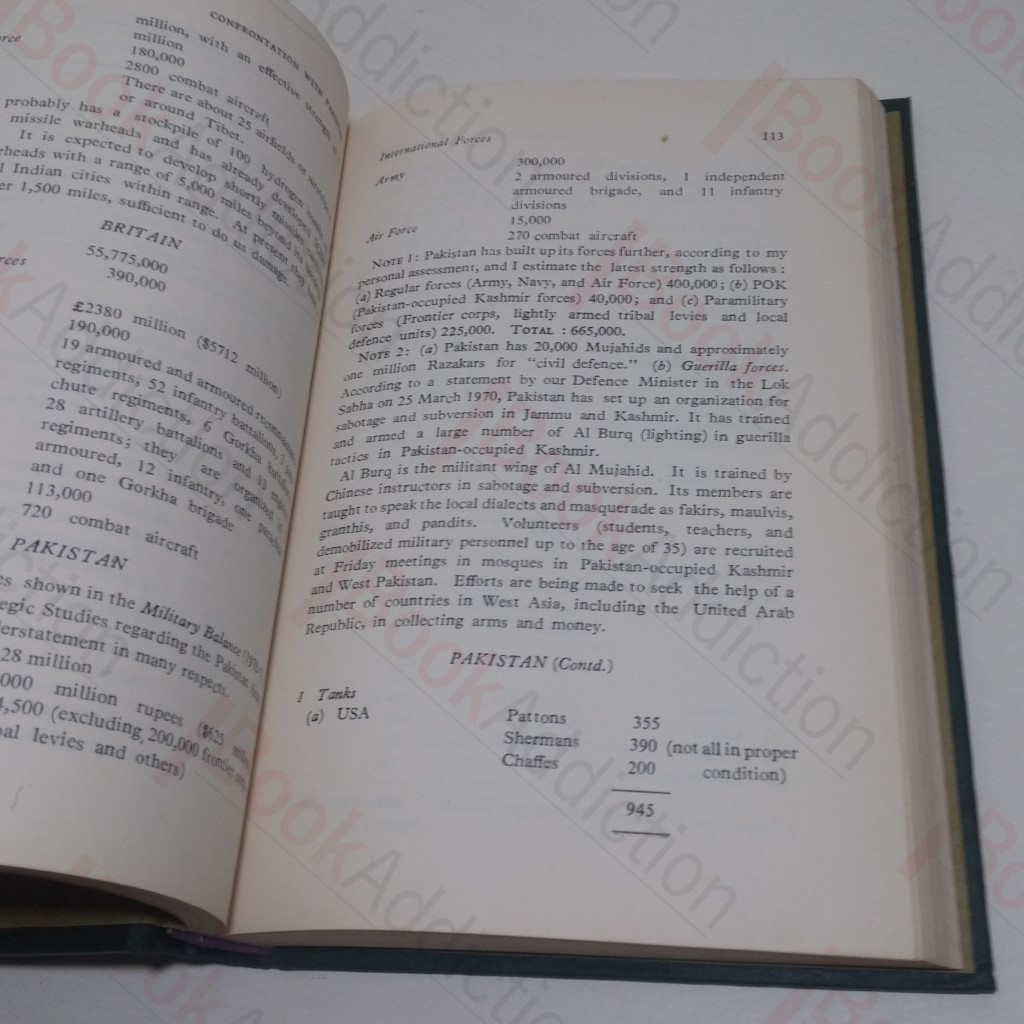 CONFRONTATION WITH
million, with an effective strength of
million
180,000
2800 combat aircraft
There are about 25 airfields or airstrips
or around Tibet.
probably has a stockpile of 100 hydrogen
missile warheads and has already developed
It is expected to develop shortly missiles
rheads with a range of 5,000 miles beyond its
Indian cities within range. At present they
er 1,500 miles, sufficient to do us damage.
BRITAIN
55,775,000
rces
390,000
£2380 million ($5712 million)
190,000
19 armoured and armoured reconnaissance
regiments, 52 infantry battalions, 3
chute regiments, 6 Gorkha
28 artillery battalions and 13
regiments; they are organized
armoured, 12 infantry, one
and one Gorkha brigade
113,000
720 combat aircraft
PAKISTAN
es shown in the Military Balance
egic Studies regarding the Pakistan
derstatement in many respects.
28 million
000 million rupees ($625
4,500 (excluding 200,000 frontier
bal levies and others)
International Forces 113
300,000
Army 2 armoured divisions, 1 independent
armoured brigade, and 11 infantry
divisions
15,000
Air Force 270 combat aircraft
NOTE 1: Pakistan has built up its forces further, according to my
personal assessment, and I estimate the latest strength as follows :
(a) Regular forces (Army, Navy, and Air Force) 400,000; (b) POK
(Pakistan-occupied Kashmir forces) 40,000; and (c) Paramilitary
forces (Frontier corps, lightly armed tribal levies and local
defence units) 225,000. TOTAL : 665,000.
NOTE 2: (a) Pakistan has 20,000 Mujahids and approximately
one million Razakars for "civil defence." (b) Guerilla forces.
According to a statement by our Defence Minister in the Lok
Sabha on 25 March 1970, Pakistan has set up an organization for
sabotage and subversion in Jammu and Kashmir. It has trained
and armed a large number of Al Burq (lighting) in guerilla
tactics in Pakistan-occupied Kashmir.
Al Burq is the militant wing of Al Mujahid. It is trained by
Chinese instructors in sabotage and subversion. Its members are
taught to speak the local dialects and masquerade as fakirs, maulvis,
granthis, and pandits. Volunteers (students, teachers, and
demobilized military personnel up to the age of 35) are recruited
at Friday meetings in mosques in Pakistan-occupied Kashmir
and West Pakistan. Efforts are being made to seek the help of a
number of countries in West Asia, including the United Arab
Republic, in collecting arms and money.
PAKISTAN (Contd.)
1 Tanks
(a) USA Pattons 355
Shermans 390 (not all in proper
Chaffes 200 condition)
945